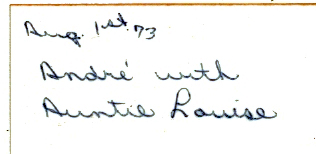 Aug. 1st. 73
André with
Auntie Louise